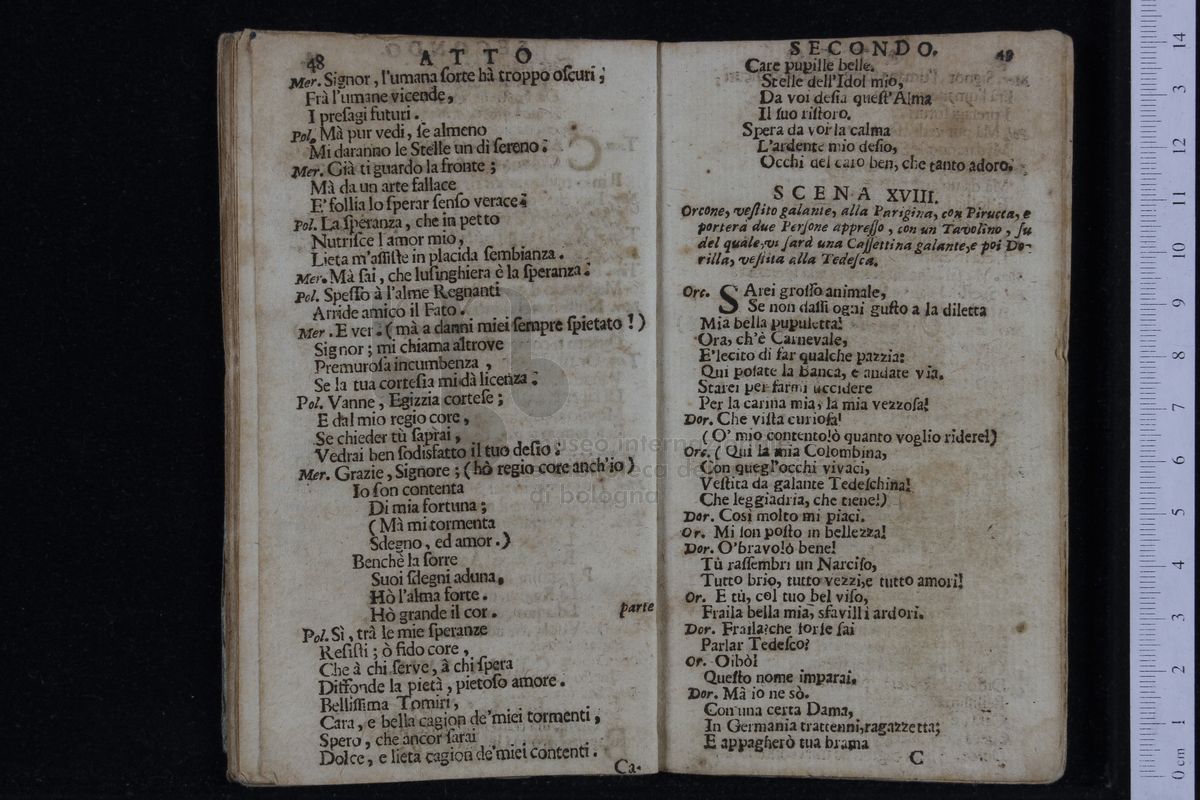 48 ATTO
Mer. Signor, l'umana ſorte hà troppo oſcuri;
Frà l'umane vicende,
I preſagi futuri.
Pol. Mà pur vedi, ſe almeno
Mi daranno le Stelle un di ſereno.
Mer. Già ti guardo la fronte;
Mà da un arte fallace
E' follia lo ſperar ſenſo verace.
Pol. La ſperanza, che in petto
Nutriſce l'amor mio,
Lieta m'aſſiſte in placida ſembianza.
Mer. Mà ſai, che luſinghiera è la ſperanza.
Pol. Speſſo à l'alme Regnanti
Arride amico il Fato.
Mer. E ver. (mà a danni miei ſempre ſpietato!)
Signor; mi chiama altrove
Premuroſa incumbenza,
Se la tua corteſia mi dà licenza.
Pol. Vanne, Egizzia corteſe;
E dal mio regio core,
Se chieder tù ſaprai,
Vedrai ben ſodisfatto il tuo deſio.
Mer. Grazie, Signore; (hò regio core anch'io)
Io ſon contenta
Di mia fortuna;
(Mà mi tormenta
Sdegno, ed amor.)
Benchè la ſorte
Suoi ſdegni aduna,
Hò l'alma forte.
Hò grande il cor. parte
Pol. Sì, trà le mie ſperanze
Reſiſti; ò fido core,
Che à chi ſerve, à chi ſpera
Diffonde la pietà, pietoſo amore.
Belliſſima Tomiri,
Cara, e bella cagion de'miei tormenti,
Spero, che ancor ſarai
Dolce, e lieta cagion de'miei contenti.
Ca-
SECONDO. 49
Care pupille belle.
Stelle dell'Idol mio,
Da voi deſia queſt'Alma
Il ſuo riſtoro.
Spera da voi la calma
L'ardente mio deſio,
Occhi del caro ben, che tanto adoro.
SCENA XVIII.
Orcone, veſtito galante, alla Parigina, con Pirucca, e
porterà due Perſone appreſſo, con un Tavolino, ſu
del quale, vi ſarà una Caſſettina galante, e poi Do-
rilla, veſtita alla Tedeſca.
Orc. SArei groſſo animale,
Se non daſſi ogni guſto a la diletta
Mia bella pupuletta!
Ora, ch'è Carnevale,
E' lecito di far qualche pazzia:
Qui poſate la Banca, e andate via.
Starei per farmi uccidere
Per la carina mia, la mia vezzoſa!
Dor. Che viſta curioſa!
(O' mio contento! ò quanto voglio ridere!)
Orc. (Qui la mia Colombina,
Con quegl'occhi vivaci,
Veſtita da galante Tedeſchina!
Che leggiadria, che tiene!)
Dor. Così molto mi piaci.
Or. Mi ſon poſto in bellezza!
Dor. O' bravo! ò bene!
Tù raſſembri un Narciſo,
Tutto brio, tutto vezzi, e tutto amori!
Or. E tù, col tuo bel viſo,
Fraila bella mia, sfavilli ardori.
Dor. Fraila? che forſe ſai
Parlar Tedeſco?
Or. Oibò!
Queſto nome imparai.
Dor. Mà io ne sò.
Con una certa Dama,
In Germania trattenni, ragazzetta;
E appagherò tua brama
C